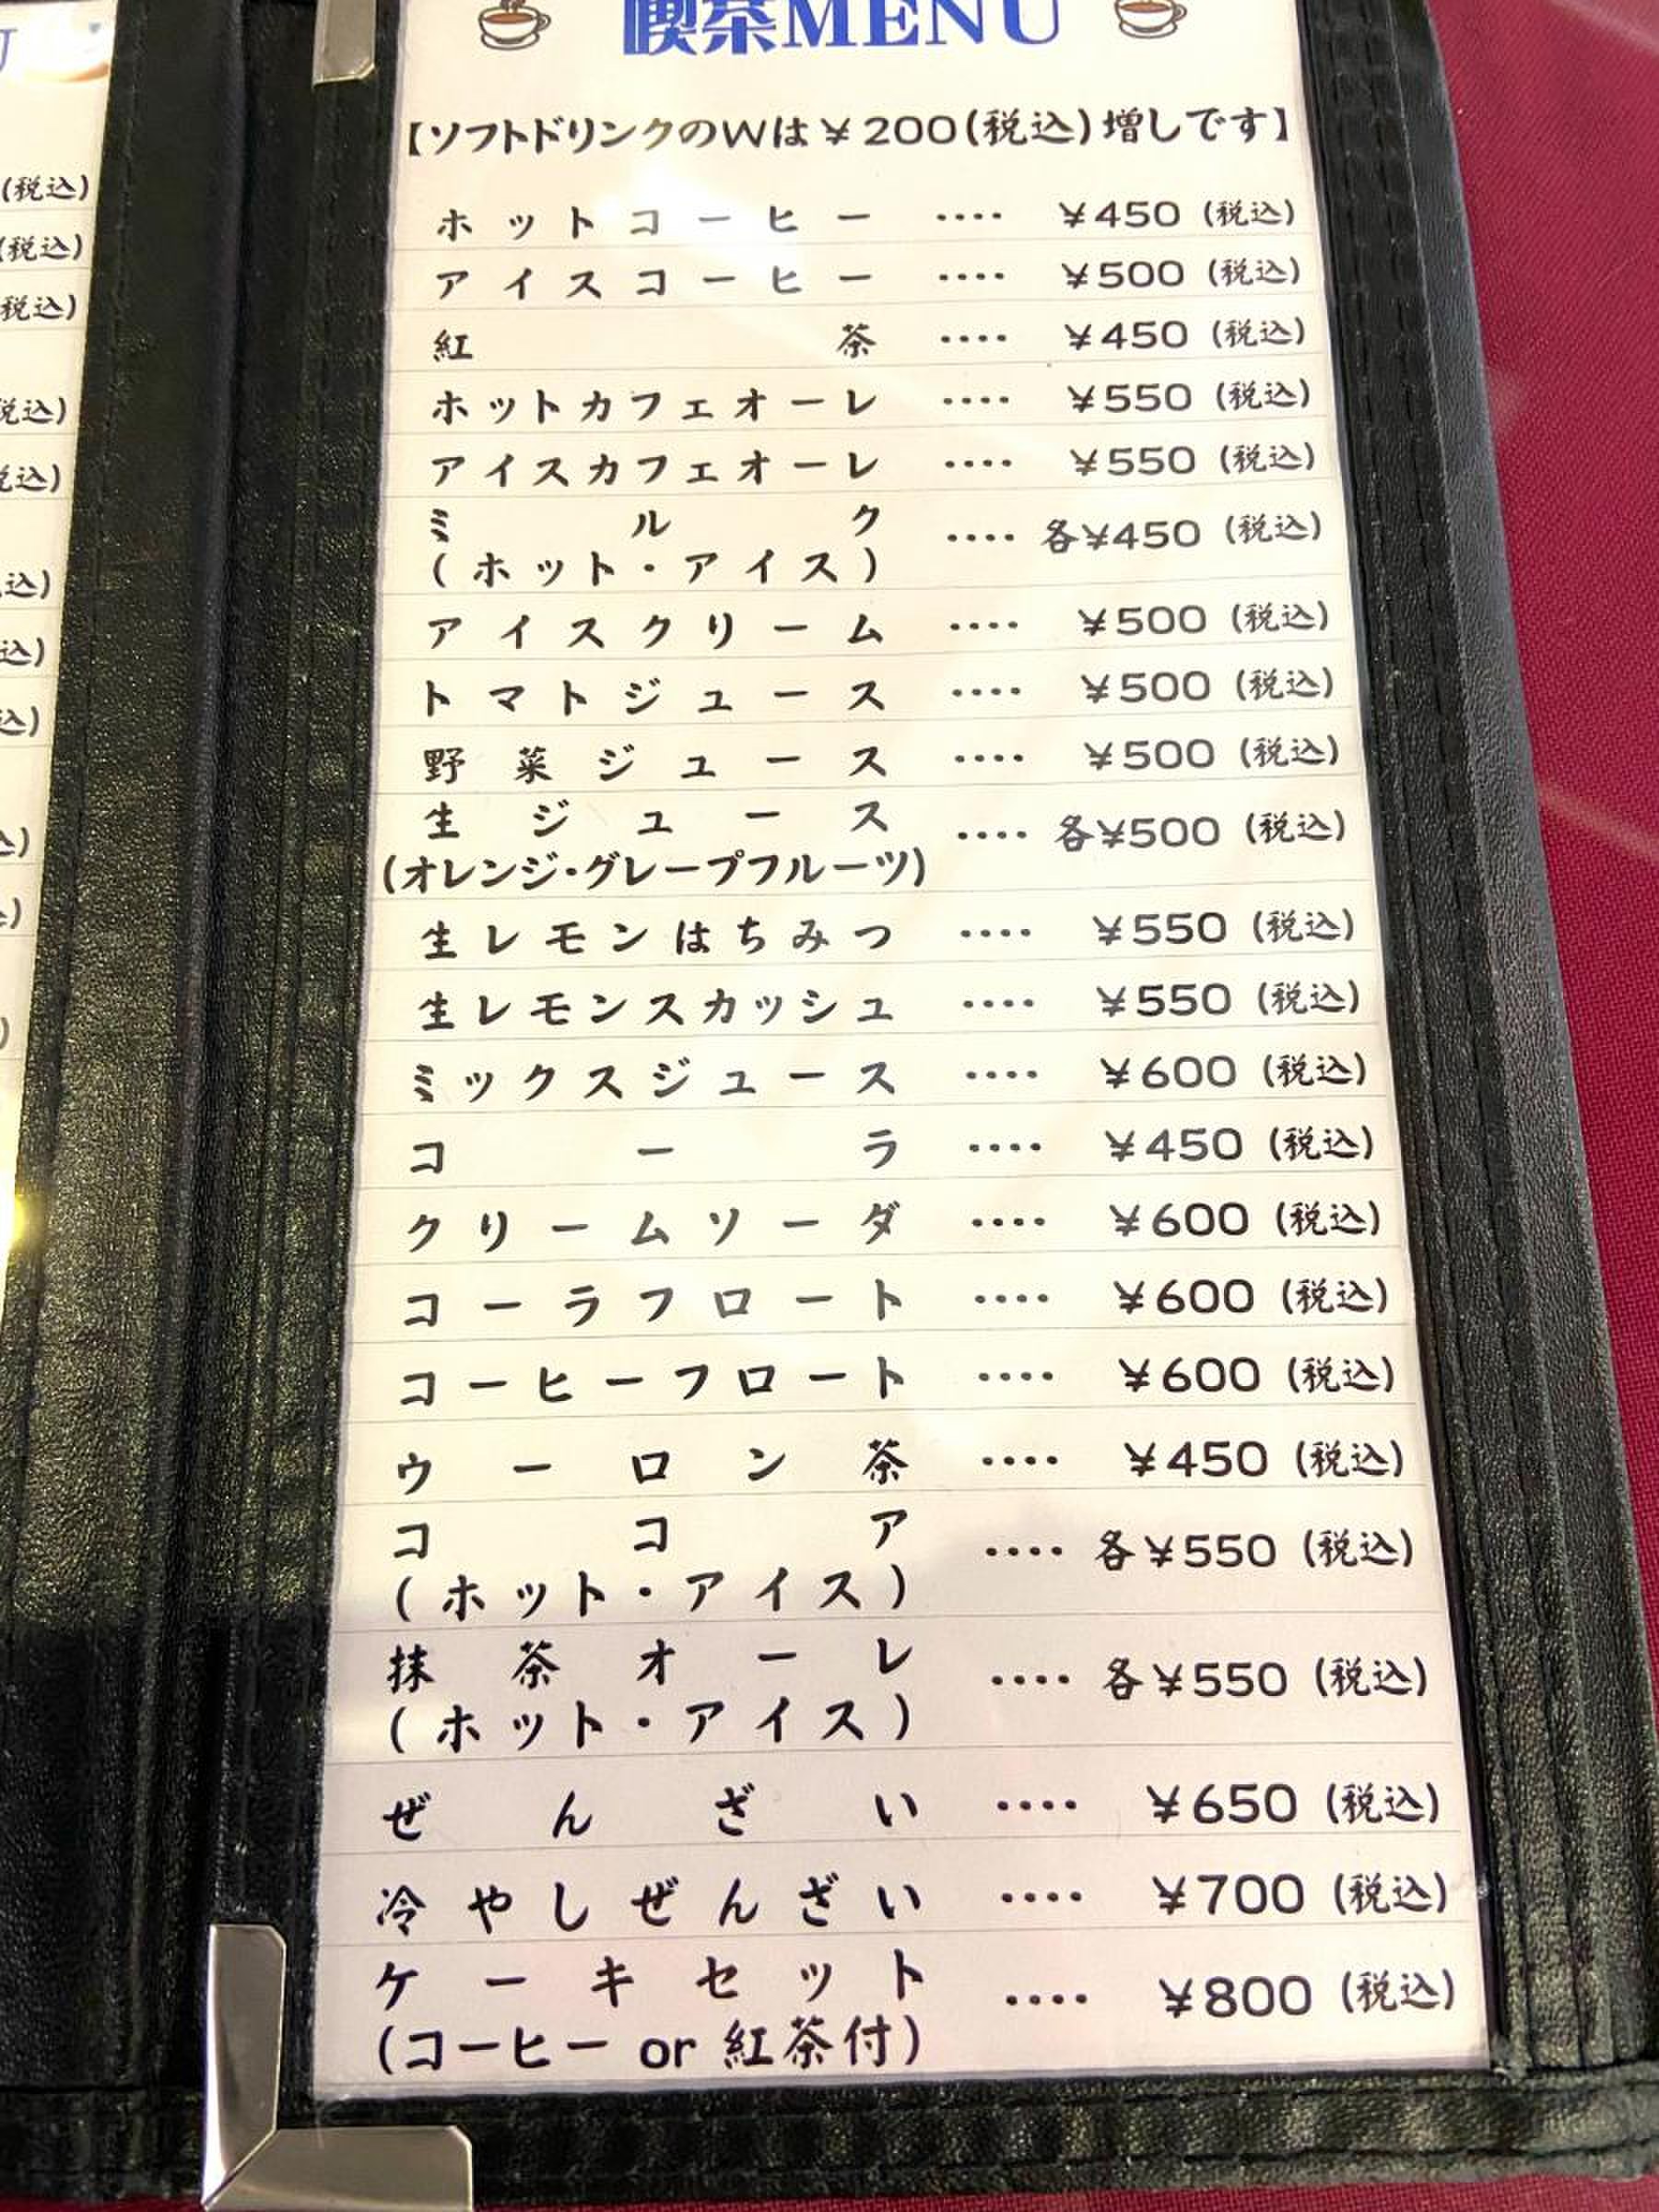 喫茶MENU
【ソフトドリンクのWは¥200(税込)増しです】
ホットコーヒー ････ ¥450 (税込)
アイスコーヒー ････ ¥500 (税込)
紅茶 ････ ¥450 (税込)
ホットカフェオーレ ････ ¥550 (税込)
アイスカフェオーレ ････ ¥550 (税込)
ミルク ････ 各¥450 (税込)
(ホット・アイス)
アイスクリーム ････ ¥500 (税込)
トマトジュース ････ ¥500 (税込)
野菜ジュース ････ ¥500 (税込)
生ジュース ････ 各¥500 (税込)
(オレンジ・グレープフルーツ)
生レモンはちみつ ････ ¥550 (税込)
生レモンスカッシュ ････ ¥550 (税込)
ミックスジュース ････ ¥600 (税込)
コーラ ････ ¥450 (税込)
クリームソーダ ････ ¥600 (税込)
コーラフロート ････ ¥600 (税込)
コーヒーフロート ････ ¥600 (税込)
ウーロン茶 ････ ¥450 (税込)
ココア ････ 各¥550 (税込)
(ホット・アイス)
抹茶オーレ ････ 各¥550 (税込)
(ホット・アイス)
ぜんざい ････ ¥650 (税込)
冷やしぜんざい ････ ¥700 (税込)
ケーキセット ････ ¥800 (税込)
(コーヒー or 紅茶付)
(税込)
(税込)
税込)
税込)
税込)
込)
込)
込)